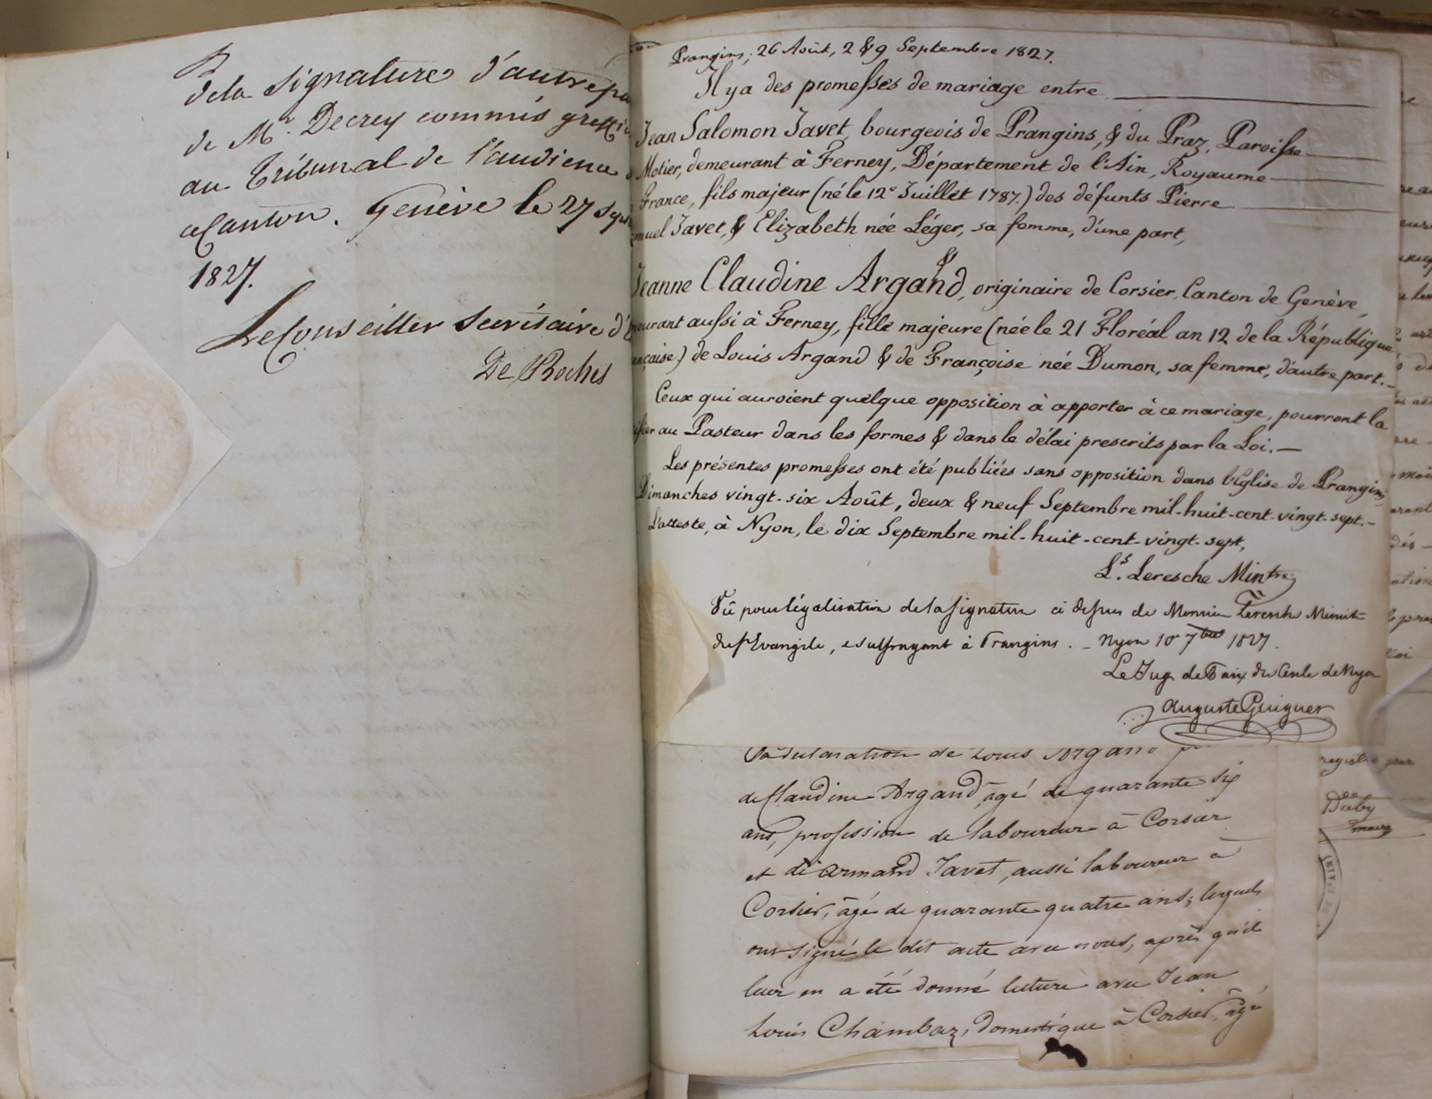 de la signature d'autre pa
de Mr. Decrey commis greffi
au Tribunal de l'audience
ce Canton. Genève le 27
1827.
Le Conseiller Secrétaire d'
De Roches
Prangins, 26 Août, 2 & 9 Septembre 1827.
Il y a des promesses de mariage entre
Jean Salomon Javet, bourgeois de Prangins, & du Praz, Paroisse
Motier, demeurant à Ferney, Département de l'Ain, Royaume
France, fils majeur (né le 12e Juillet 1787.) des défunts Pierre
muel Javet, & Elizabeth née Léger, sa femme, d'une part,
&
Jeanne Claudine Argand, originaire de Corsier, Canton de Genève,
eurant aussi à Ferney, fille majeure (née le 21 Floréal an 12 de la République
nçaise) de Louis Argand & de Françoise née Dumon, sa femme, d'autre part.
Ceux qui auroient quelque opposition à apporter à ce mariage, pourront la
ifier au Pasteur dans les formes & dans le délai prescrits par la Loi.
Les présentes promesses ont été publiées sans opposition dans l'Eglise de Prangins,
Dimanches vingt-six Août, deux & neuf Septembre mil-huit-cent-vingt-sept.
L'atteste, à Nyon, le dix Septembre mil-huit-cent-vingt-sept,
Ls. Leresche Mintre
Vû pour légalisation de la signature ci dessus de Monsieur Leresche Ministre
du St Evangile, et suffragant à Prangins. Nyon 10 7bre 1827.
Le Juge de Paix du Cercle de Nyon
Auguste Guiguer
La déclaration de Louis Argand
de Claudine Argand, agé de quarante six
ans, profession de laboureur à Corsier
et de armand Javet, aussi laboureur à
Corsier, âgé de quarante quatre ans; lesquels
ont signé le dit acte avec nous, après qu'il
leur en a été donné lecture avec Jean
Louis Chambaz, domestique à Corsier, âgé
Duby
maire